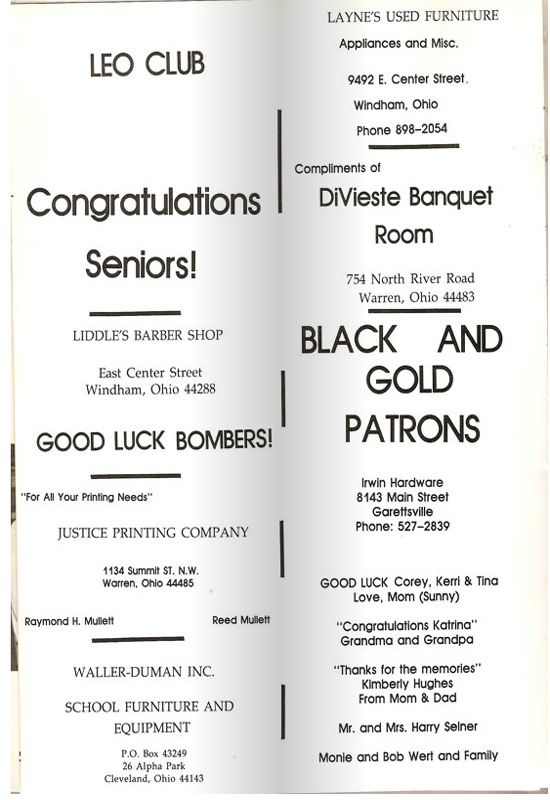 LEO CLUB
Congratulations
Seniors!
LIDDLE'S BARBER SHOP
East Center Street
Windham, Ohio 44288
GOOD LUCK BOMBERS!
"For All Your Printing Needs"
JUSTICE PRINTING COMPANY
1134 Summit ST. N.W.
Warren, Ohio 44485
Raymond H. Mullett Reed Mullett
WALLER-DUMAN INC.
SCHOOL FURNITURE AND
EQUIPMENT
P.O. Box 43249
26 Alpha Park
Cleveland, Ohio 44143
LAYNE'S USED FURNITURE
Appliances and Misc.
9492 E. Center Street.
Windham, Ohio
Phone 898-2054
Compliments of
DiVieste Banquet
Room
754 North River Road
Warren, Ohio 44483
BLACK AND
GOLD
PATRONS
Irwin Hardware
8143 Main Street
Garettsville
Phone: 527-2839
GOOD LUCK Corey, Kerri & Tina
Love, Mom (Sunny)
"Congratulations Katrina"
Grandma and Grandpa
"Thanks for the memories"
Kimberly Hughes
From Mom & Dad
Mr. and Mrs. Harry Selner
Monie and Bob Wert and Family